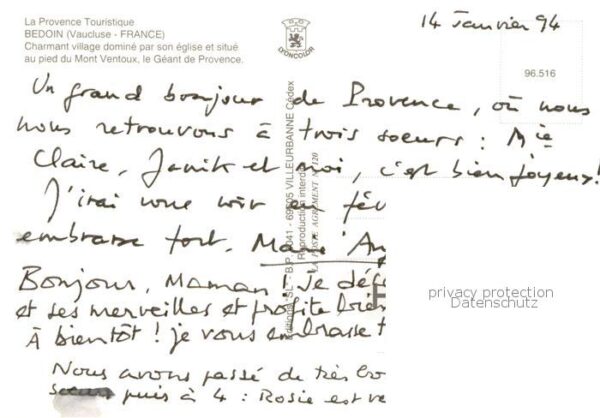 La Provence Touristique
BEDOIN (Vaucluse - FRANCE)
Charmant village dominé par son église et situé
au pied du Mont Ventoux, le Géant de Provence.
LYONCOLOR
14 Janvier 94
96.516
Un grand bonjour de Provence, où nous
nous retrouvons à trois soeurs : Mie
Claire, Janik et moi, c'est bien joyeux !
J'irai vous voir en fév
embrasse fort. Marie An
Bonjour, Maman ! Je déc
et ses merveilles et profite bien
À bientôt ! je vous embrasse t
Nous avons passé de très bo
soeurs puis à 4 : Rosie est ve
Editions "SL" - B.P. 3041 - 69605 VILLEURBANNE Cédex
Reproduction interdite
LA POSTE AGREMENT N° 120
privacy protection
Datenschutz